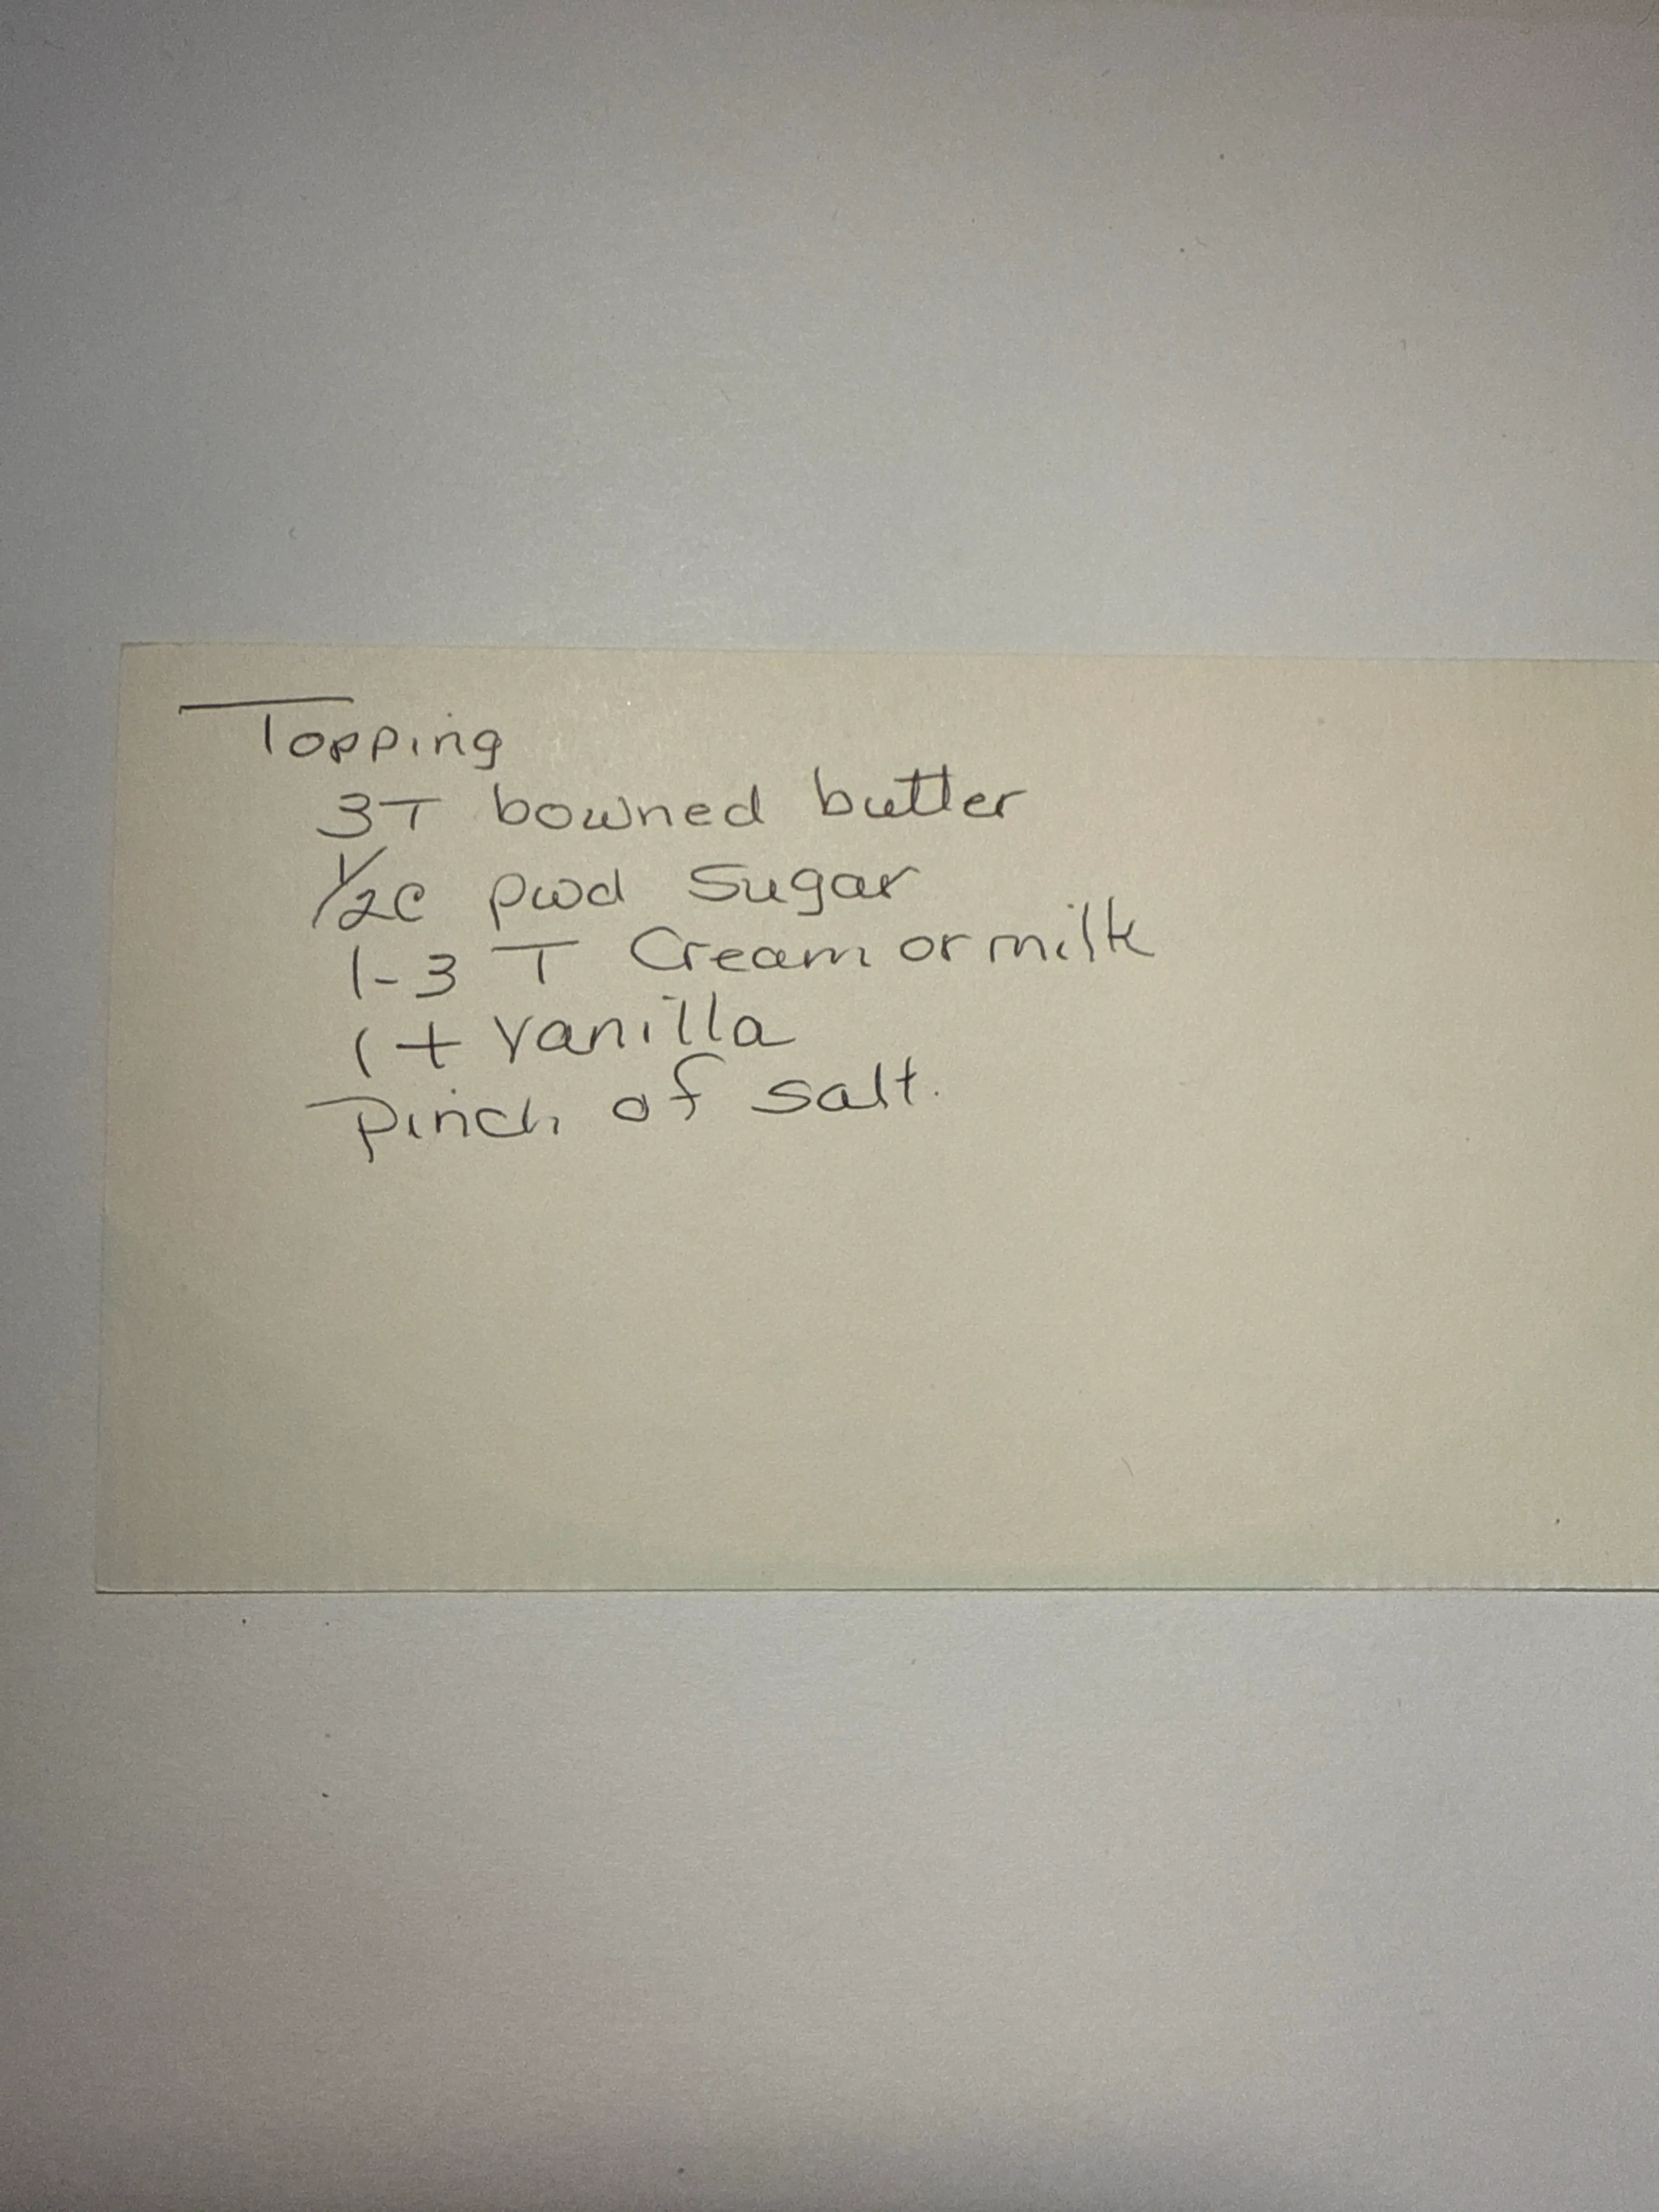 Topping
3T bowned butter
1/2c pwd Sugar
1-3 T Cream or milk
1 t vanilla
Pinch of salt.